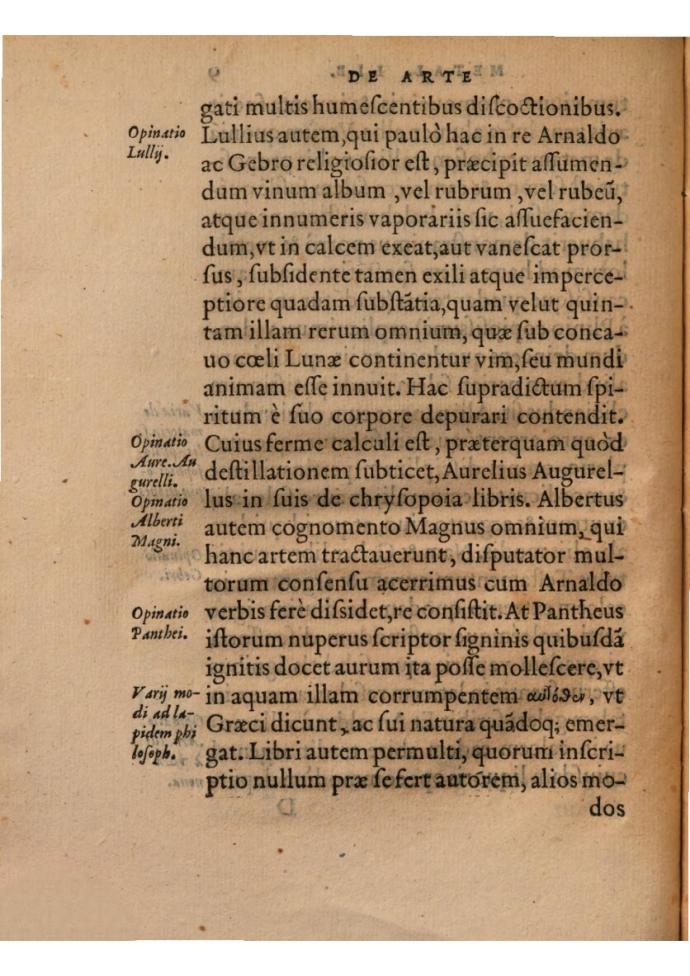 DE ARTE
gati multis humeſcentibus diſcoctionibus.
Opinatio
Lullij.
Lullius autem,qui paulò hac in re Arnaldo
ac Gebro religioſior eſt, præcipit aſſumen-
dum vinum album ,vel rubrum ,vel rubeũ,
atque innumeris vaporariis ſic aſſuefacien-
dum,vt in calcem exeat,aut vaneſcat pror-
ſus, ſubſidente tamen exili atque imperce-
ptiore quadam ſubſtãtia,quam velut quin-
tam illam rerum omnium, quæ ſub conca-
uo cœli Lunæ continentur vim,ſeu mundi
animam eſſe innuit. Hac ſupradictum ſpi-
ritum è ſuo corpore depurari contendit.
Opinatio
Aure.Au
gurelli.
Cuius ferme calculi eſt, præterquam quòd
deſtillationem ſubticet, Aurelius Augurel-
lus in ſuis de chryſopoia libris. Albertus
Opinatio
Alberti
Magni.
autem cognomento Magnus omnium, qui
hanc artem tractauerunt, diſputator mul-
torum conſenſu acerrimus cum Arnaldo
verbis ferè diſsidet,re conſiſtit. At Pantheus
Opinatio
Panthei.
iſtorum nuperus ſcriptor ſigninis quibuſdã
ignitis docet aurum ita poſſe molleſcere,vt
Varij mo-
di ad la-
pidem phi
loſoph.
in aquam illam corrumpentem , vt
Græci dicunt, ac ſui natura quãdoq; emer-
gat. Libri autem permulti, quorum inſcri-
ptio nullum præ ſe fert autorem, alios mo-
dos